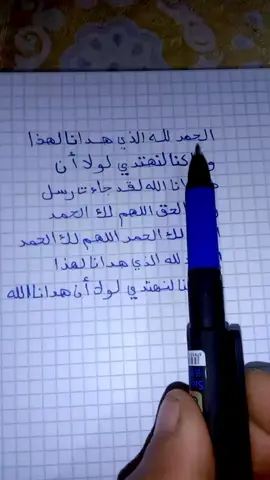 الحمد لله الذي هدانا لهذا
كنا لنهتدي لولا أن
انا الله لقد جاءت رسل
الحق اللهم لك الحمد
لك الحمد اللهم لك الحمد
لله الذي هدانا لهذا
نا لنهتدي لولا أن هدانا الله